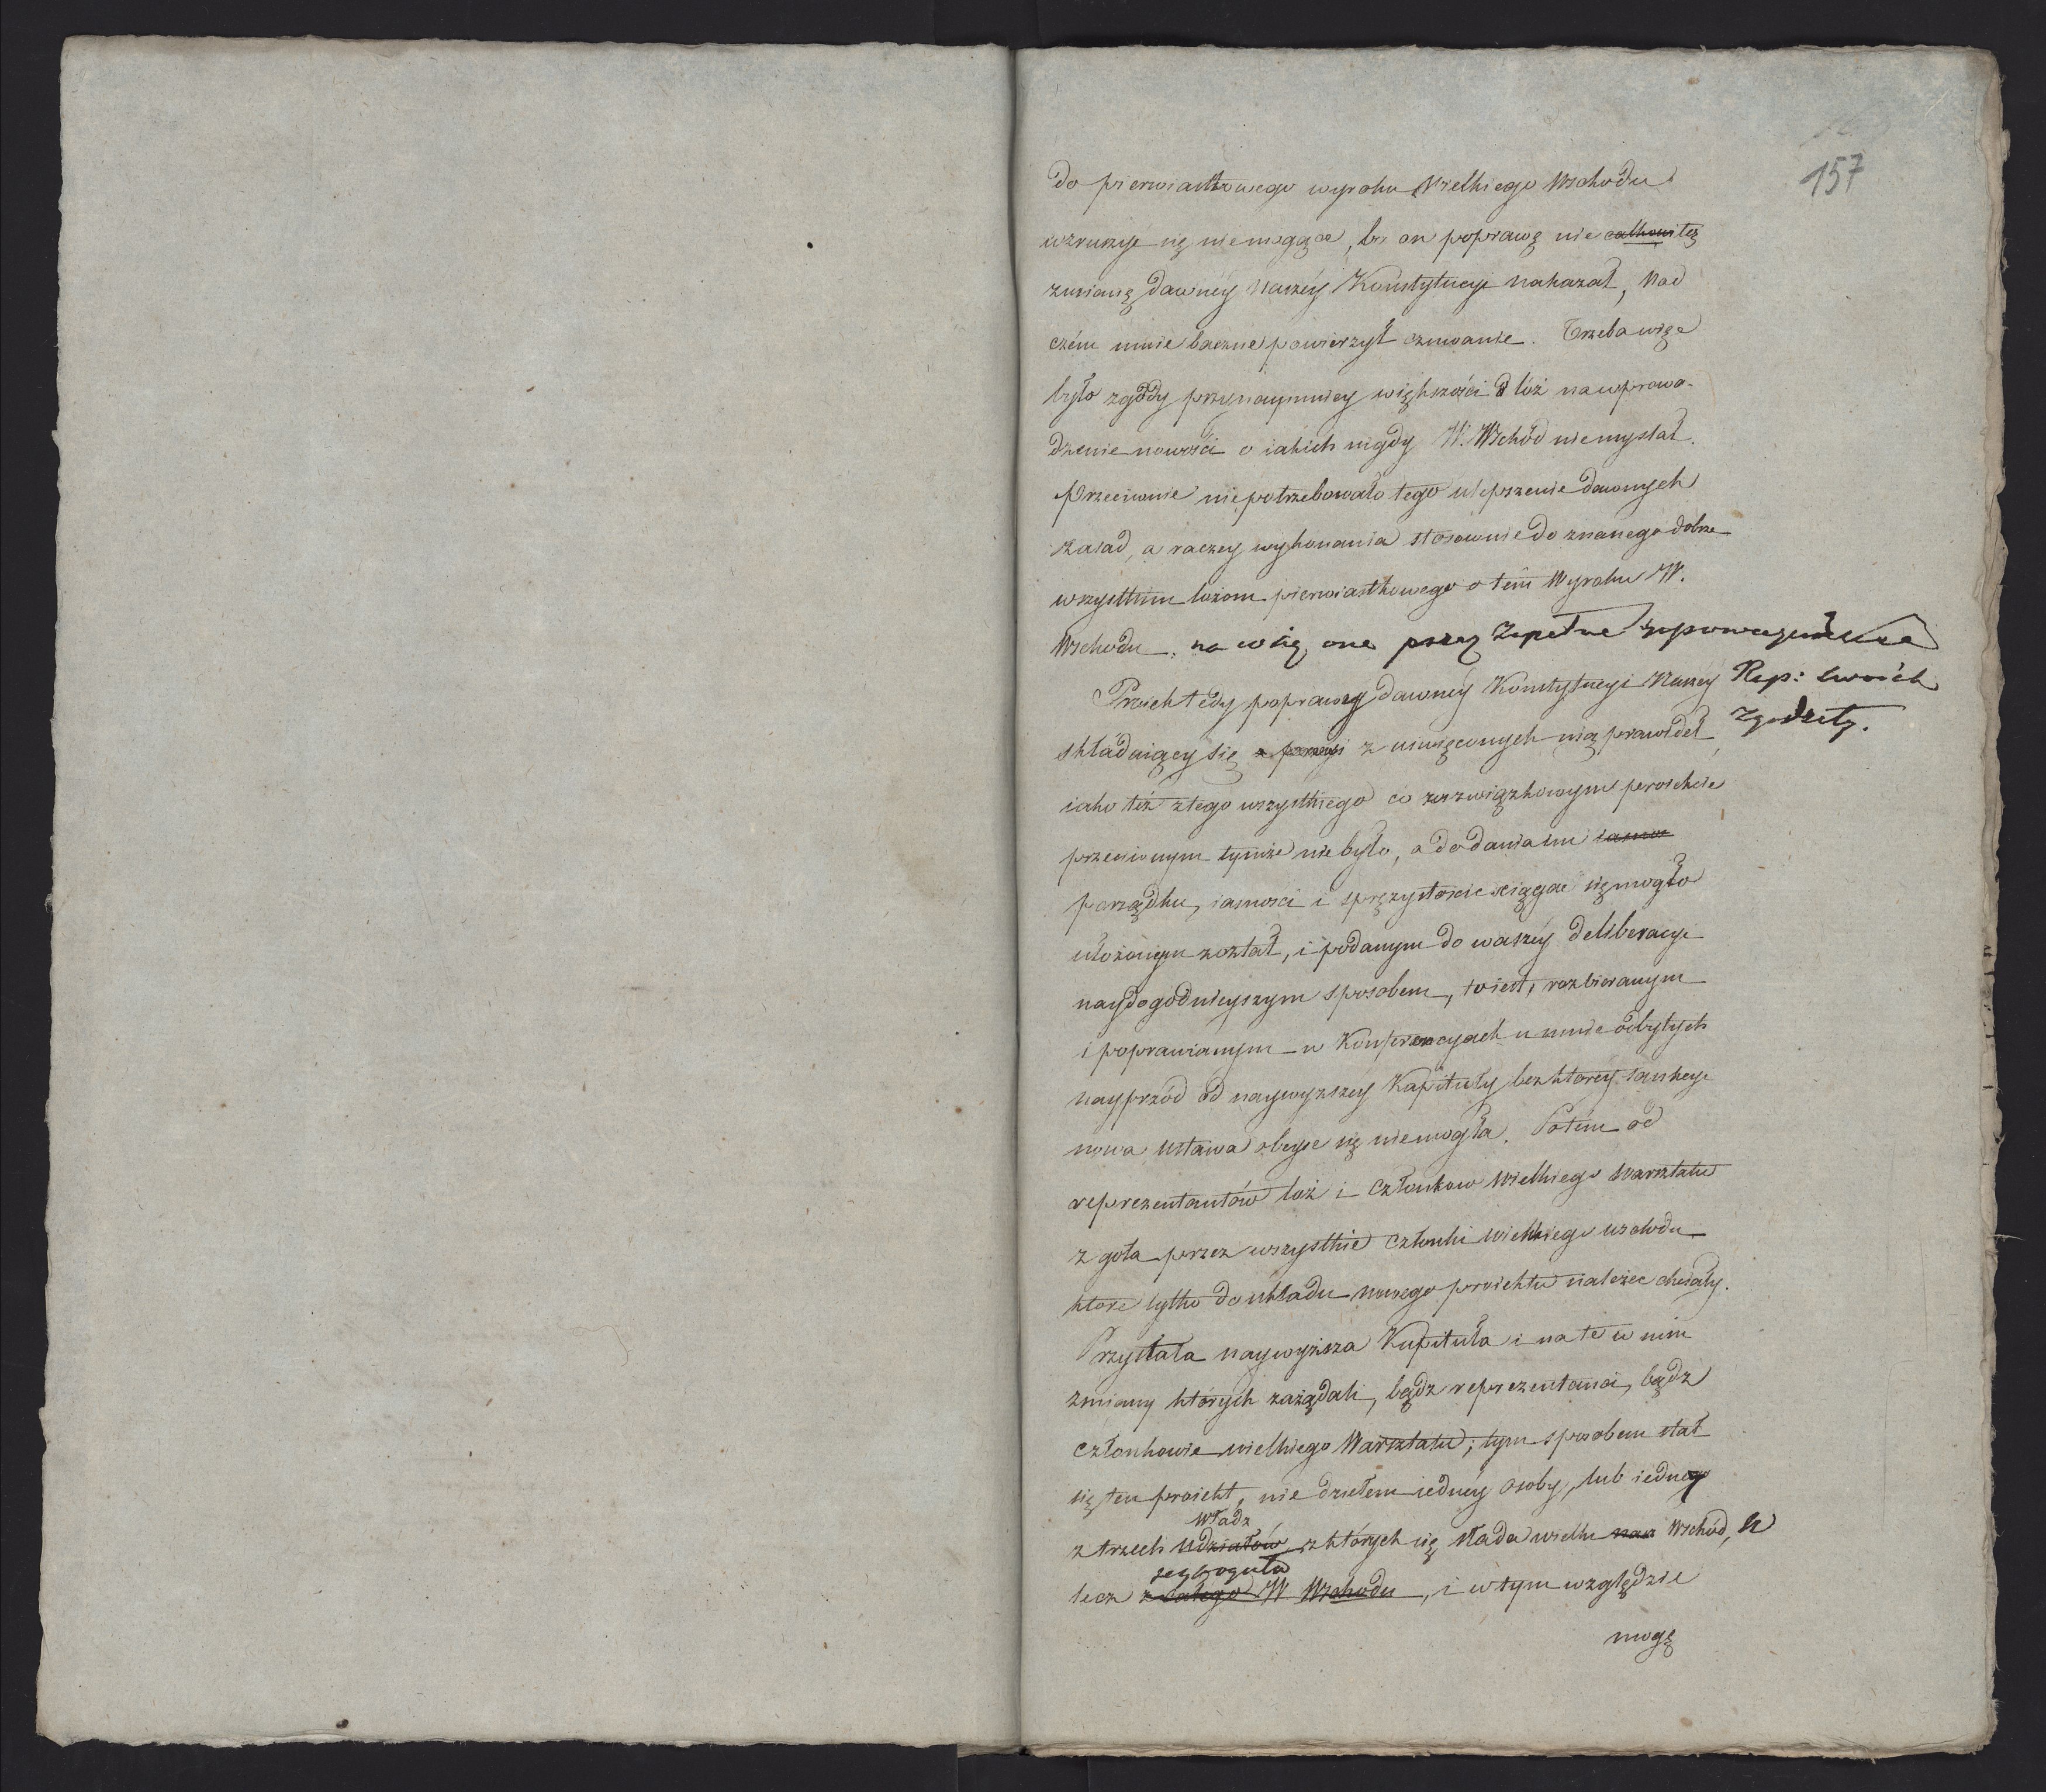 157
do pierwiastkowego wyroku Wielkiego Wschodu
wzruszyć się niemogące, bo on poprawę nie całkowitą
zmianę dawnéy Naszéy Konstytucyi nakazał, Nad
czém mnie baczne powierzył czuwanie. Trzeba więc
było zgody przynaymniey większości lóż na wprowa-
dzenie nowości o iakich nigdy W. Wschód niemyślał.
Przeciwnie niepotrzebowało tego ulepszenie dawnych
zasad, a raczey wykonania stosownie do znanego dobrze
wszystkim lożom pierwiastkowego o tém Wyroku W.
Wschodu. na co się one przez zupełne upoważnienie
Rep: swoich
zgodziły.
Proiekt tedy poprawny dawnéy Konstytucyi Naszéy
składaiący się z uświęconych nią prawideł,
iako téż z tego wszystkiego co w związkowym proiekcie
przeciwnym tymże nie było, a dodaniami
porządku, iasności i sprężystości ściągać się mogło
ułożonym został, i podanym do waszéy deliberacyi
naydogodnieyszym sposobem, to iest, rozbieranym
i poprawianym w Konferencyach u mnie odbytych
nayprzód od naywyższey Kapituły bez któréy sankcyi
nowa ustawa obeyść się niemogła. Potém od
reprezentantów loż i Członkow Wielkiego Warsztatu
zgoła przez wszystkie członki wielkiego wschodu
ktore tylko do układu nowego proiektu należec chciały.
Przystała naywyższa Kapituła i na te w nim
zmiany których zażądali, bądz reprezentanci, bądz
członkowie wielkiego Warsztatu; tym sposobem stał
się ten proiekt, nie dziełem iednéy osoby, lub iedney
władz
z trzech Udziałów z których się składa wielki Wschód,
lecz z całego W. Wschodu, i w tym względzie
mogę